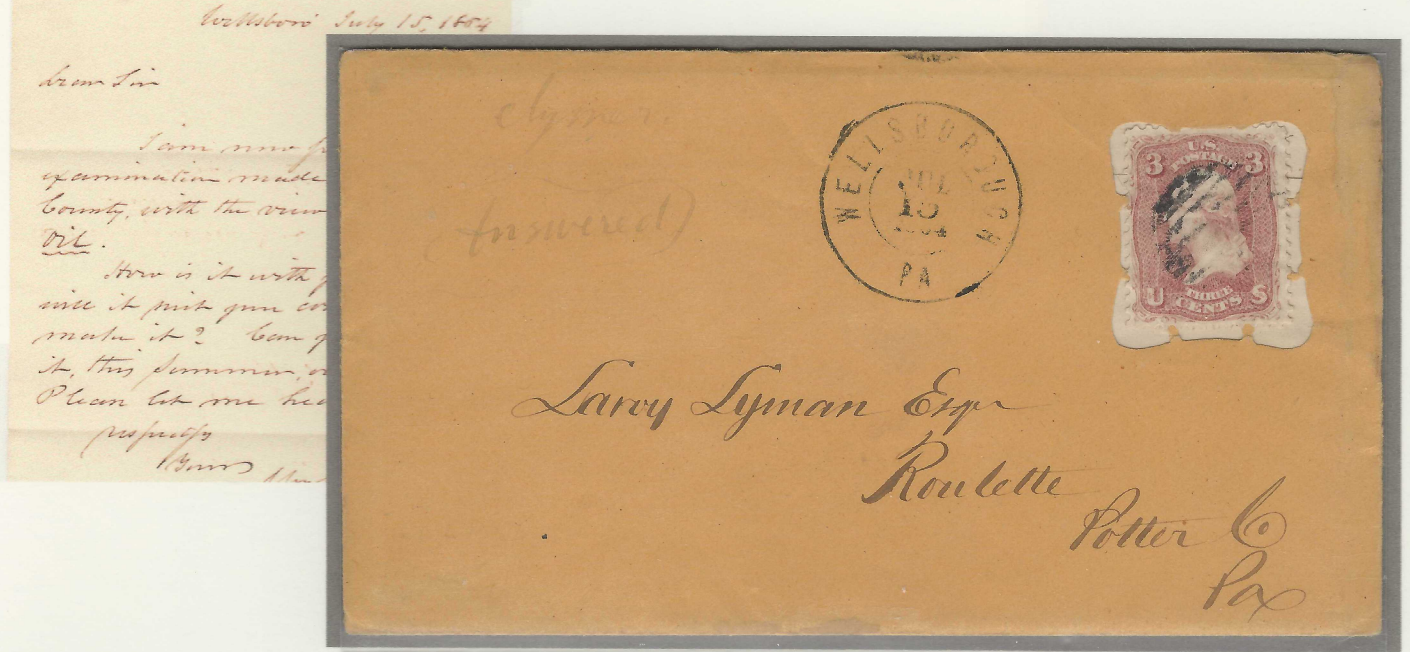 Wellsboro' July 15, 1864
Dear Sir
I am now
examination made
County, with the view
Oil.
How is it with
will it
make it? Can
it, this Summer, or
Please let me hea
respectfy
Yours
Lyman.
Answered)
WELLSBOROUGH
JUL
15
1864
PA
3 U.S. 3
POSTAGE
U THREE S
CENTS
Laroy Lyman Esqr
Roulette
Potter Co
Pa